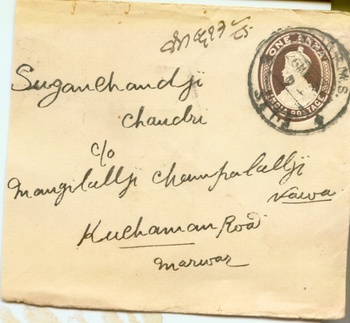 Suganchandji
Chandri
c/o
Mangilallji Champalallji
Nawa
Kuchaman Road
Marwar
ONE ANNA
INDIA POSTAGE
R.M.S.